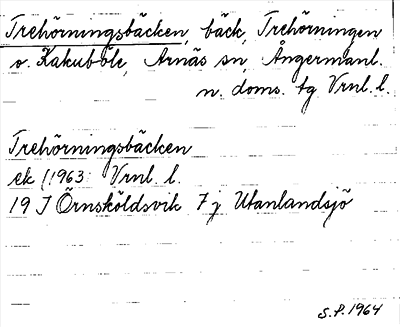 Trehörningsbäcken, bäck, Trehörningen
o. Kakuböle, Arnäs sn, Ångermanl.
n. doms. tg Vrnl. l.
Trehörningsbäcken
ek (1963: Vrnl. l.
19 J Örnsköldsvik 7 j Utanlandsjö
S.P. 1964